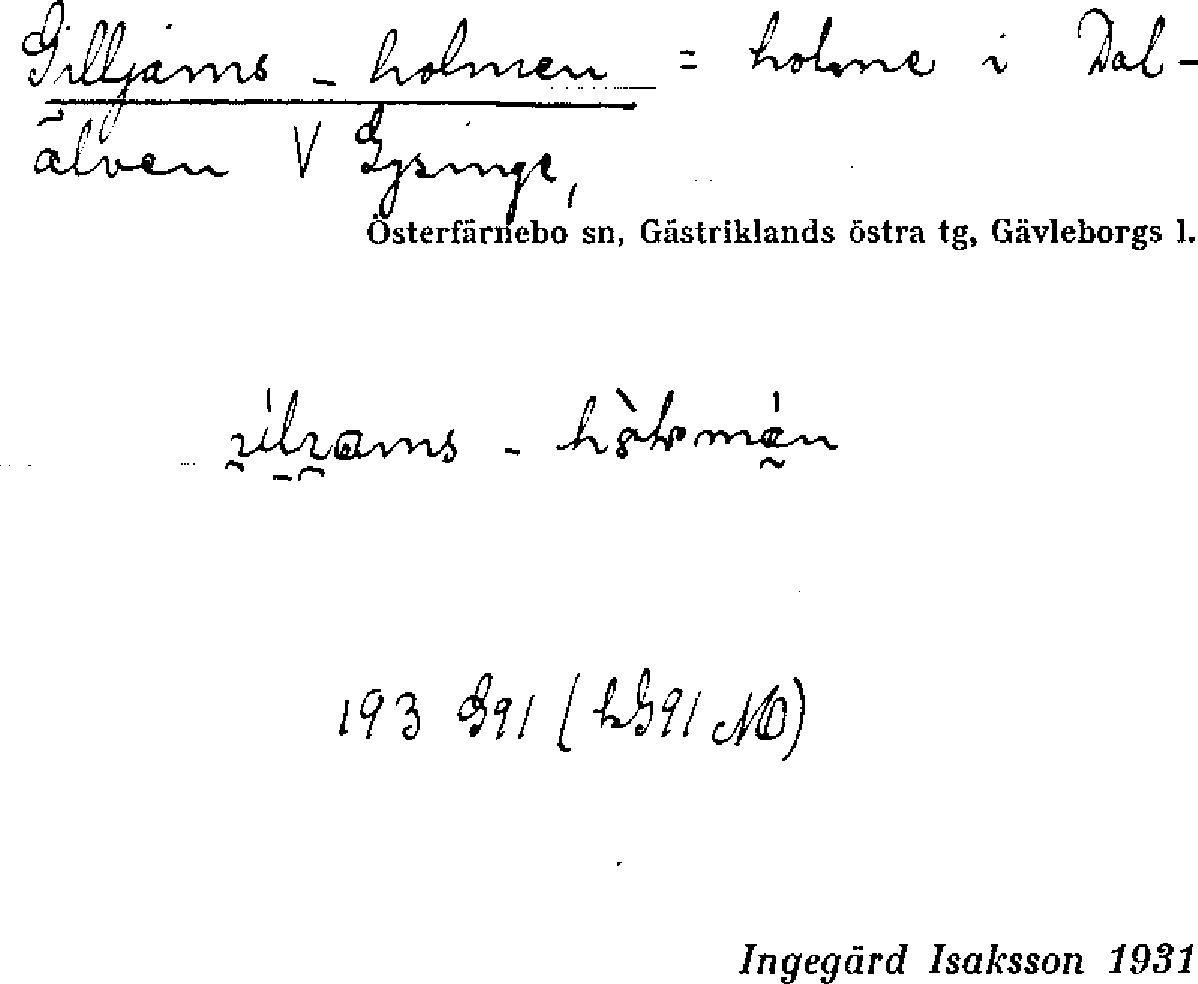 Gilljams-holmen = holme i Dal-
älven V Gysinge,
Österfärnebo sn, Gästriklands östra tg, Gävleborgs l.
193 G91 (
Ingegärd Isaksson 1931